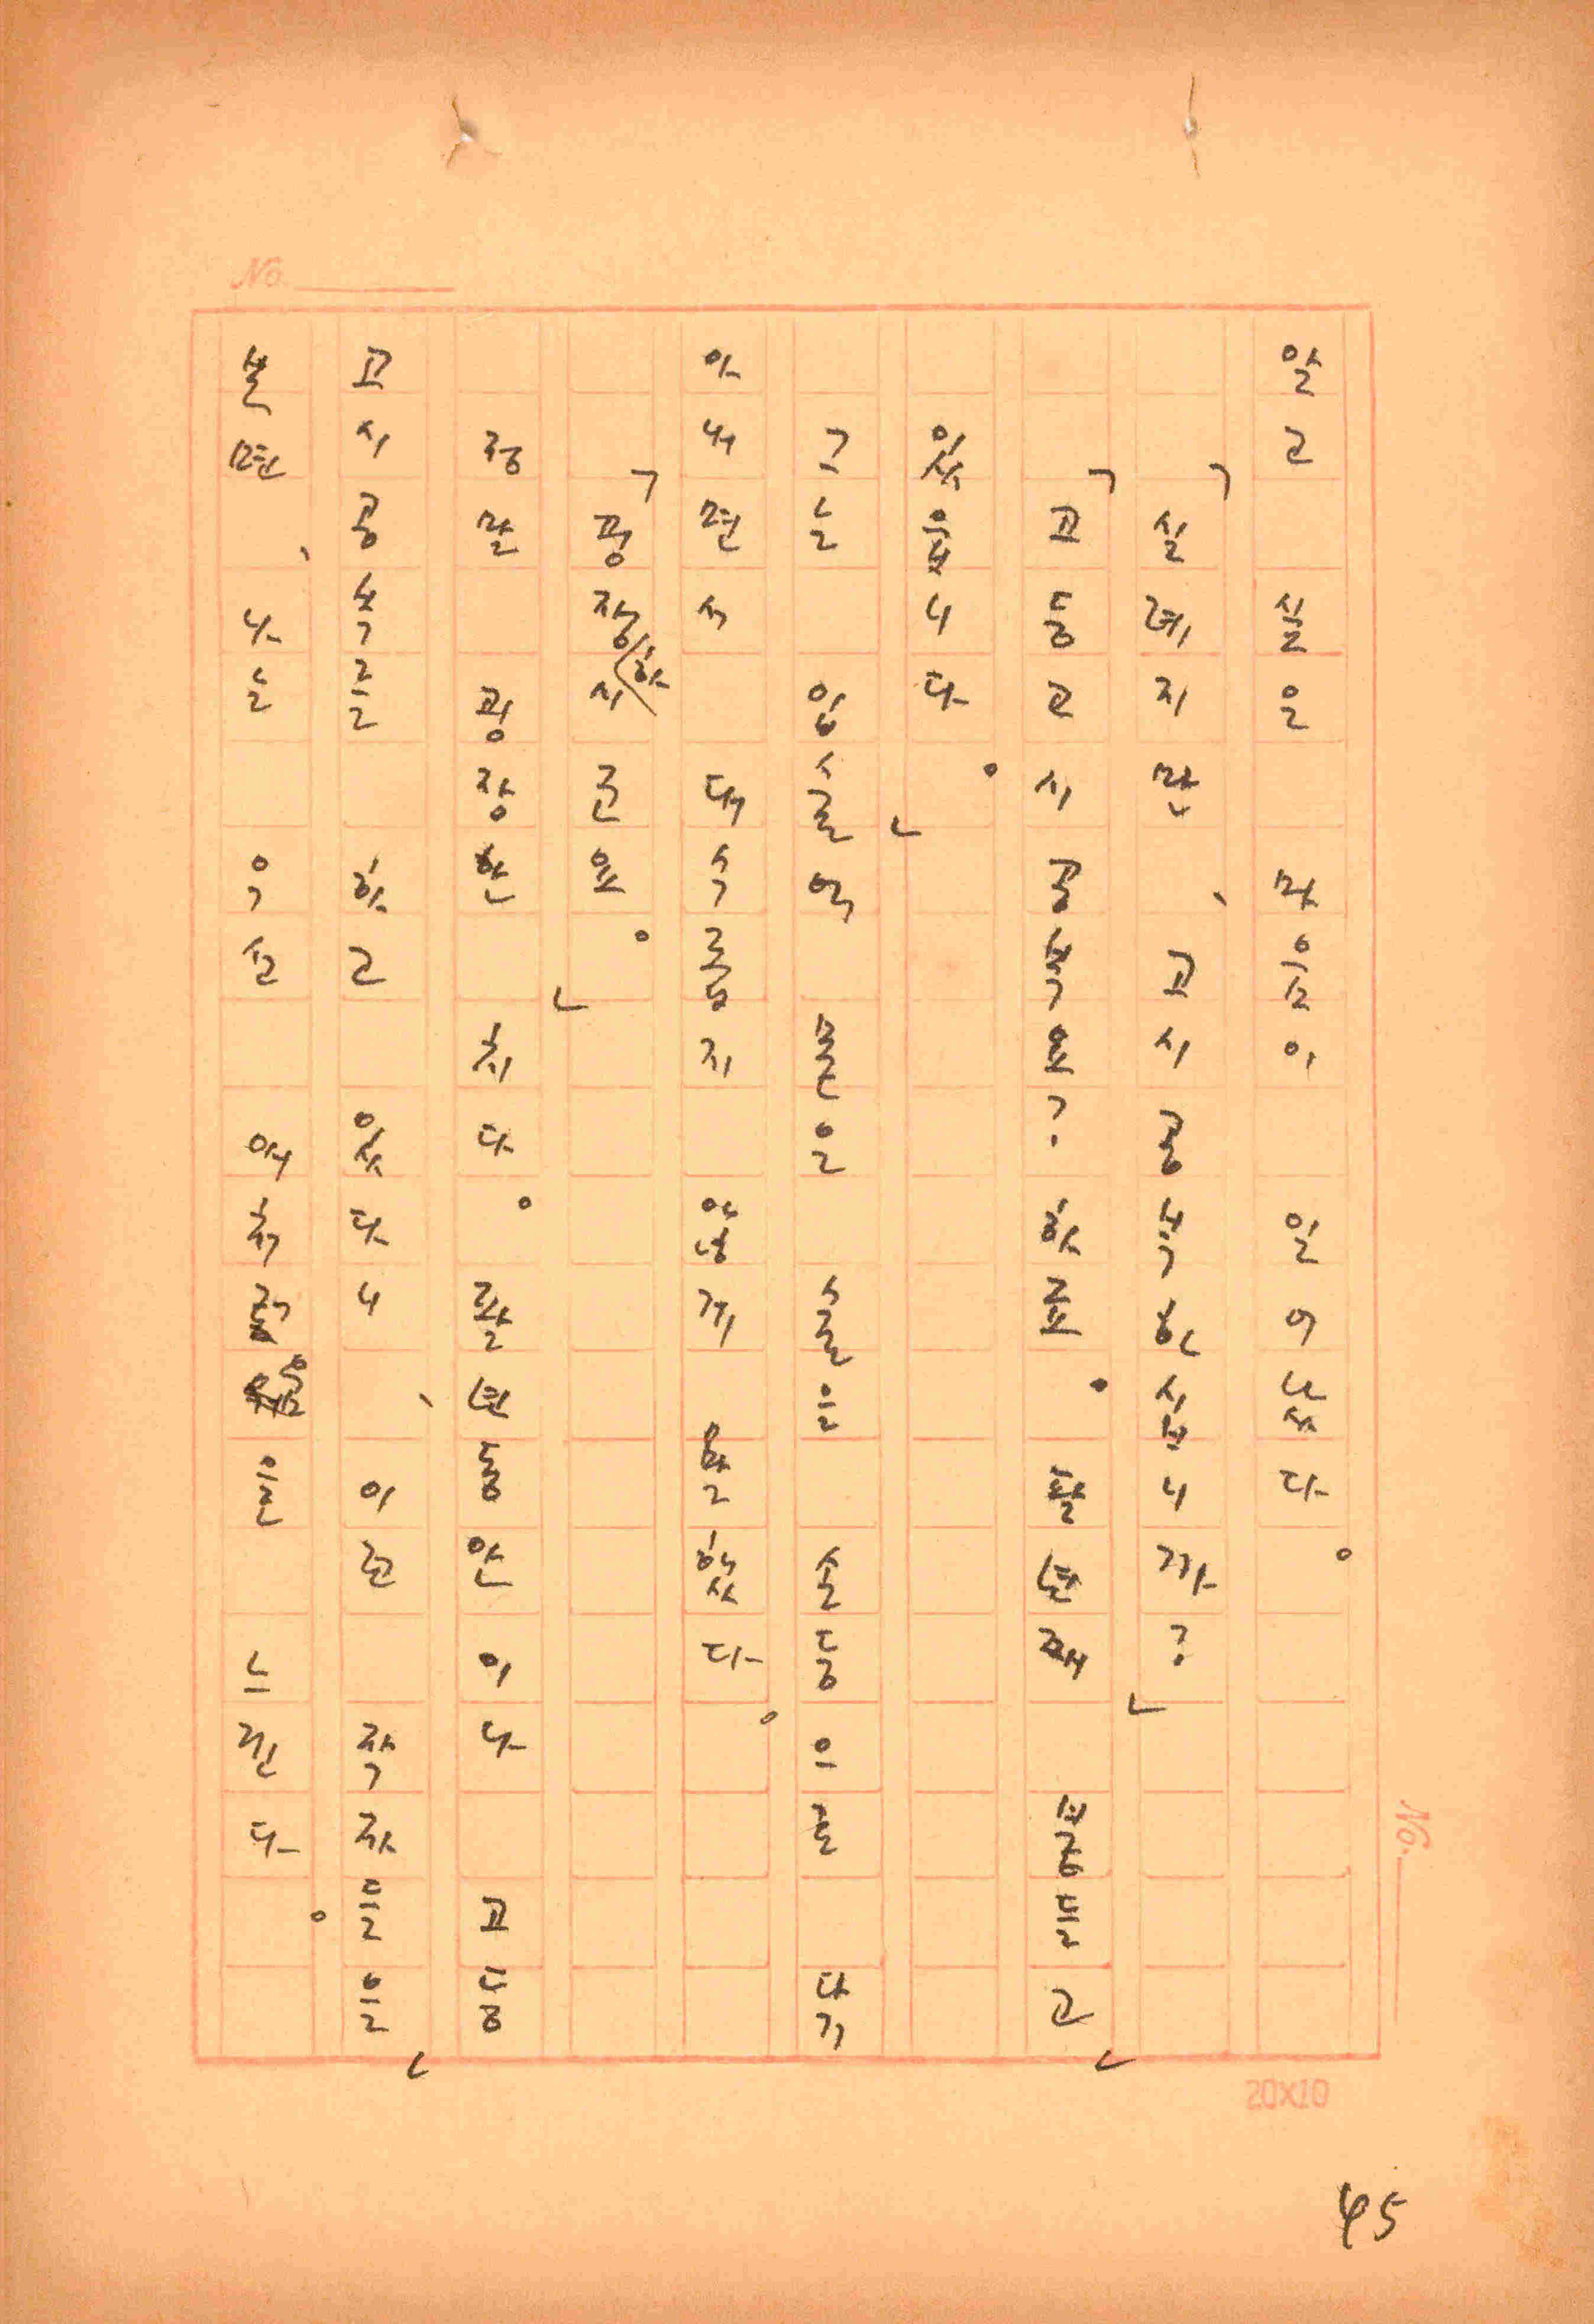 알고 싶은 마음이 일어났다。
「실례지만、고시공부하십니까?」
「고등고시 공부요? 하죠。팔년째 붙들고
있읍니다。」
그는 입술에 묻은 술을 손등으로 닦
아내면서 대수롭지 않게 말했다。
「굉장하시군요。」
정말 굉장한 치다。팔년동안이나 고등
고시공부를 하고 있다니、이런 작자들을
보면、나는 우선 애처러움을 느낀다。
No.
No.
20×10
45